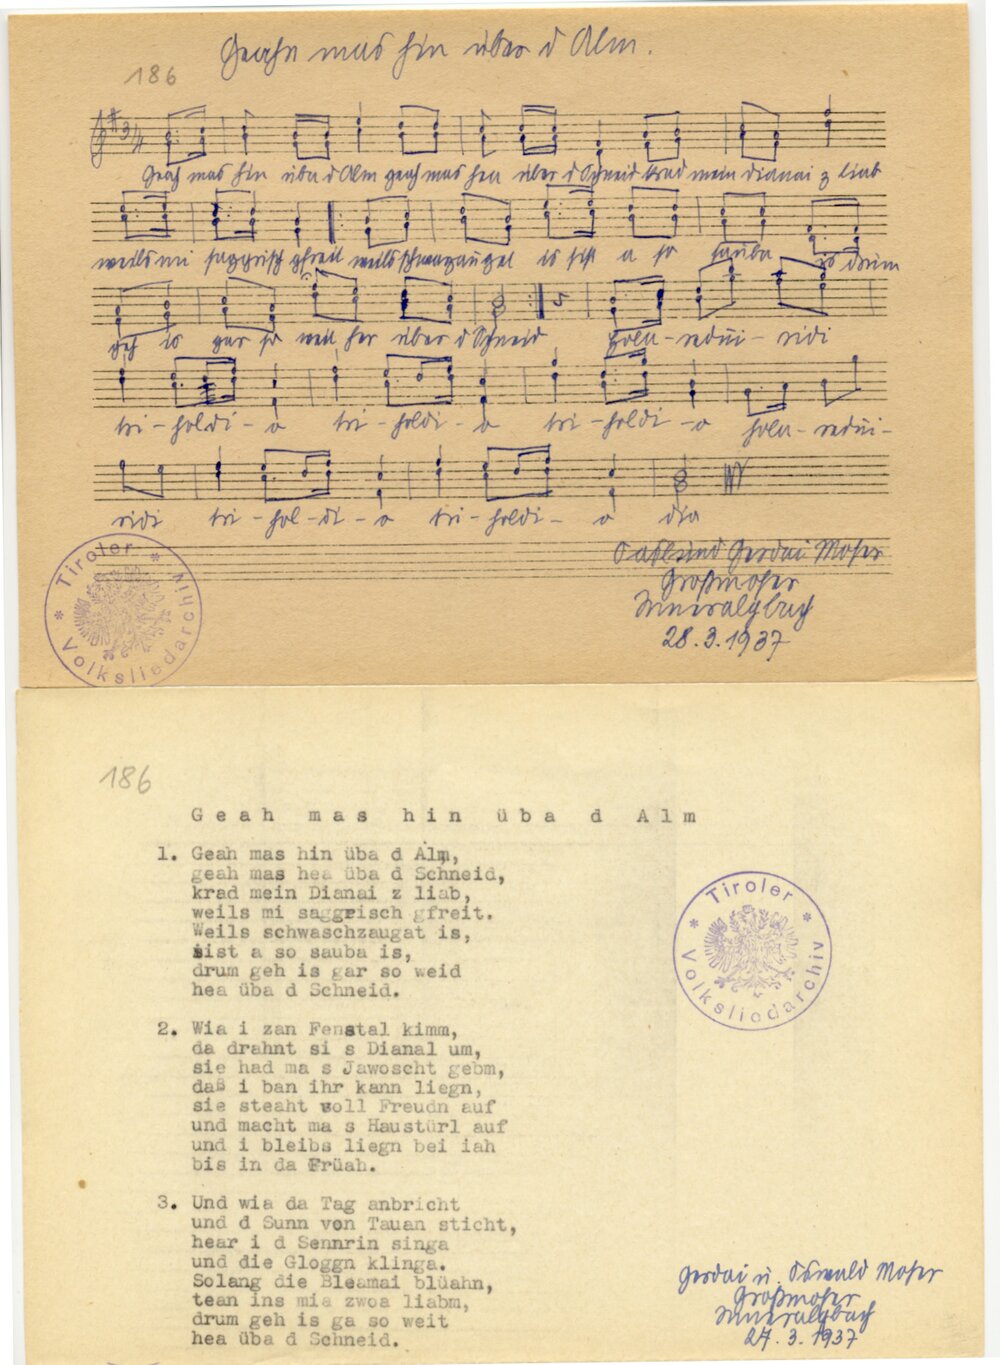 186
Geahn mas hin über d Alm.
3/4
Geah mas hin üba d Alm geah mas hea über d Schneid krad mein dianai z liab
weils mi saggrisch gfreit weils schwaszaugat is sist a so sauba is drum
geh is gar so weit her über d Schneid hola-redüi-ridi
tri-holdi-o tri-holdi-o tri-holdi-o hola-redüi-
ridi tri-hol-di-o tri-holdi-o dio
Gerdai Moser
Großmoser
Inneralpbach
28.3.1937
* Tiroler * Volksliedarchiv
186
Geah mas hin üba d Alm
1. Geah mas hin üba d Alm,
geah mas hea üba d Schneid,
krad mein Dianai z liab,
weils mi saggrisch gfreit.
Weils schwaschzaugat is,
sist a so sauba is,
drum geh is gar so weid
hea üba d Schneid.
* Tiroler * Volksliedarchiv
2. Wia i zan Fenstal kimm,
da drahnt si s Dianal um,
sie had ma s Jawoscht gebm,
daß i ban ihr kann liegn,
sie steaht voll Freudn auf
und macht ma s Haustürl auf
und i bleibs liegn bei iah
bis in da Früah.
3. Und wia da Tag anbricht
und d Sunn von Tauan sticht,
hear i d Sennrin singa
und die Gloggn klinga.
Solang die Bleamai blüahn,
tean ins mia zwoa liabm,
drum geh is ga so weit
hea üba d Schneid.
Gerdai u. Oswald Moser
Großmoser
Inneralpbach
27.3.1937